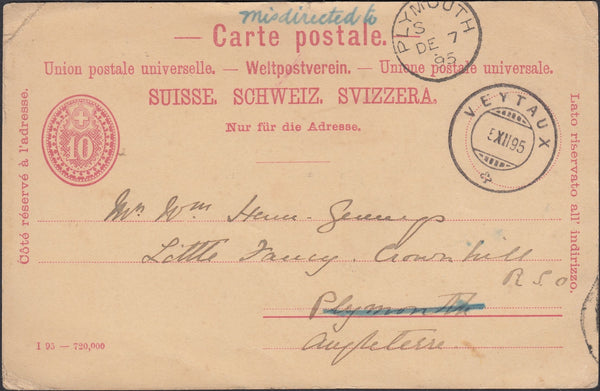 misdirected to
Carte postale.
PLYMOUTH
S 7
DE
95
Union postale universelle. — Weltpostverein. — Unione postale universale.
SUISSE. SCHWEIZ. SVIZZERA.
Nur für die Adresse.
Côté réservé à l'adresse.
10
VEYTAUX
XII 95
Lato riservato all' indirizzo.
Mr Wm Henn-Gennys
Little Fancy. Crownhill
R S O
Plymouth
Angleterre
1 95 — 720,000